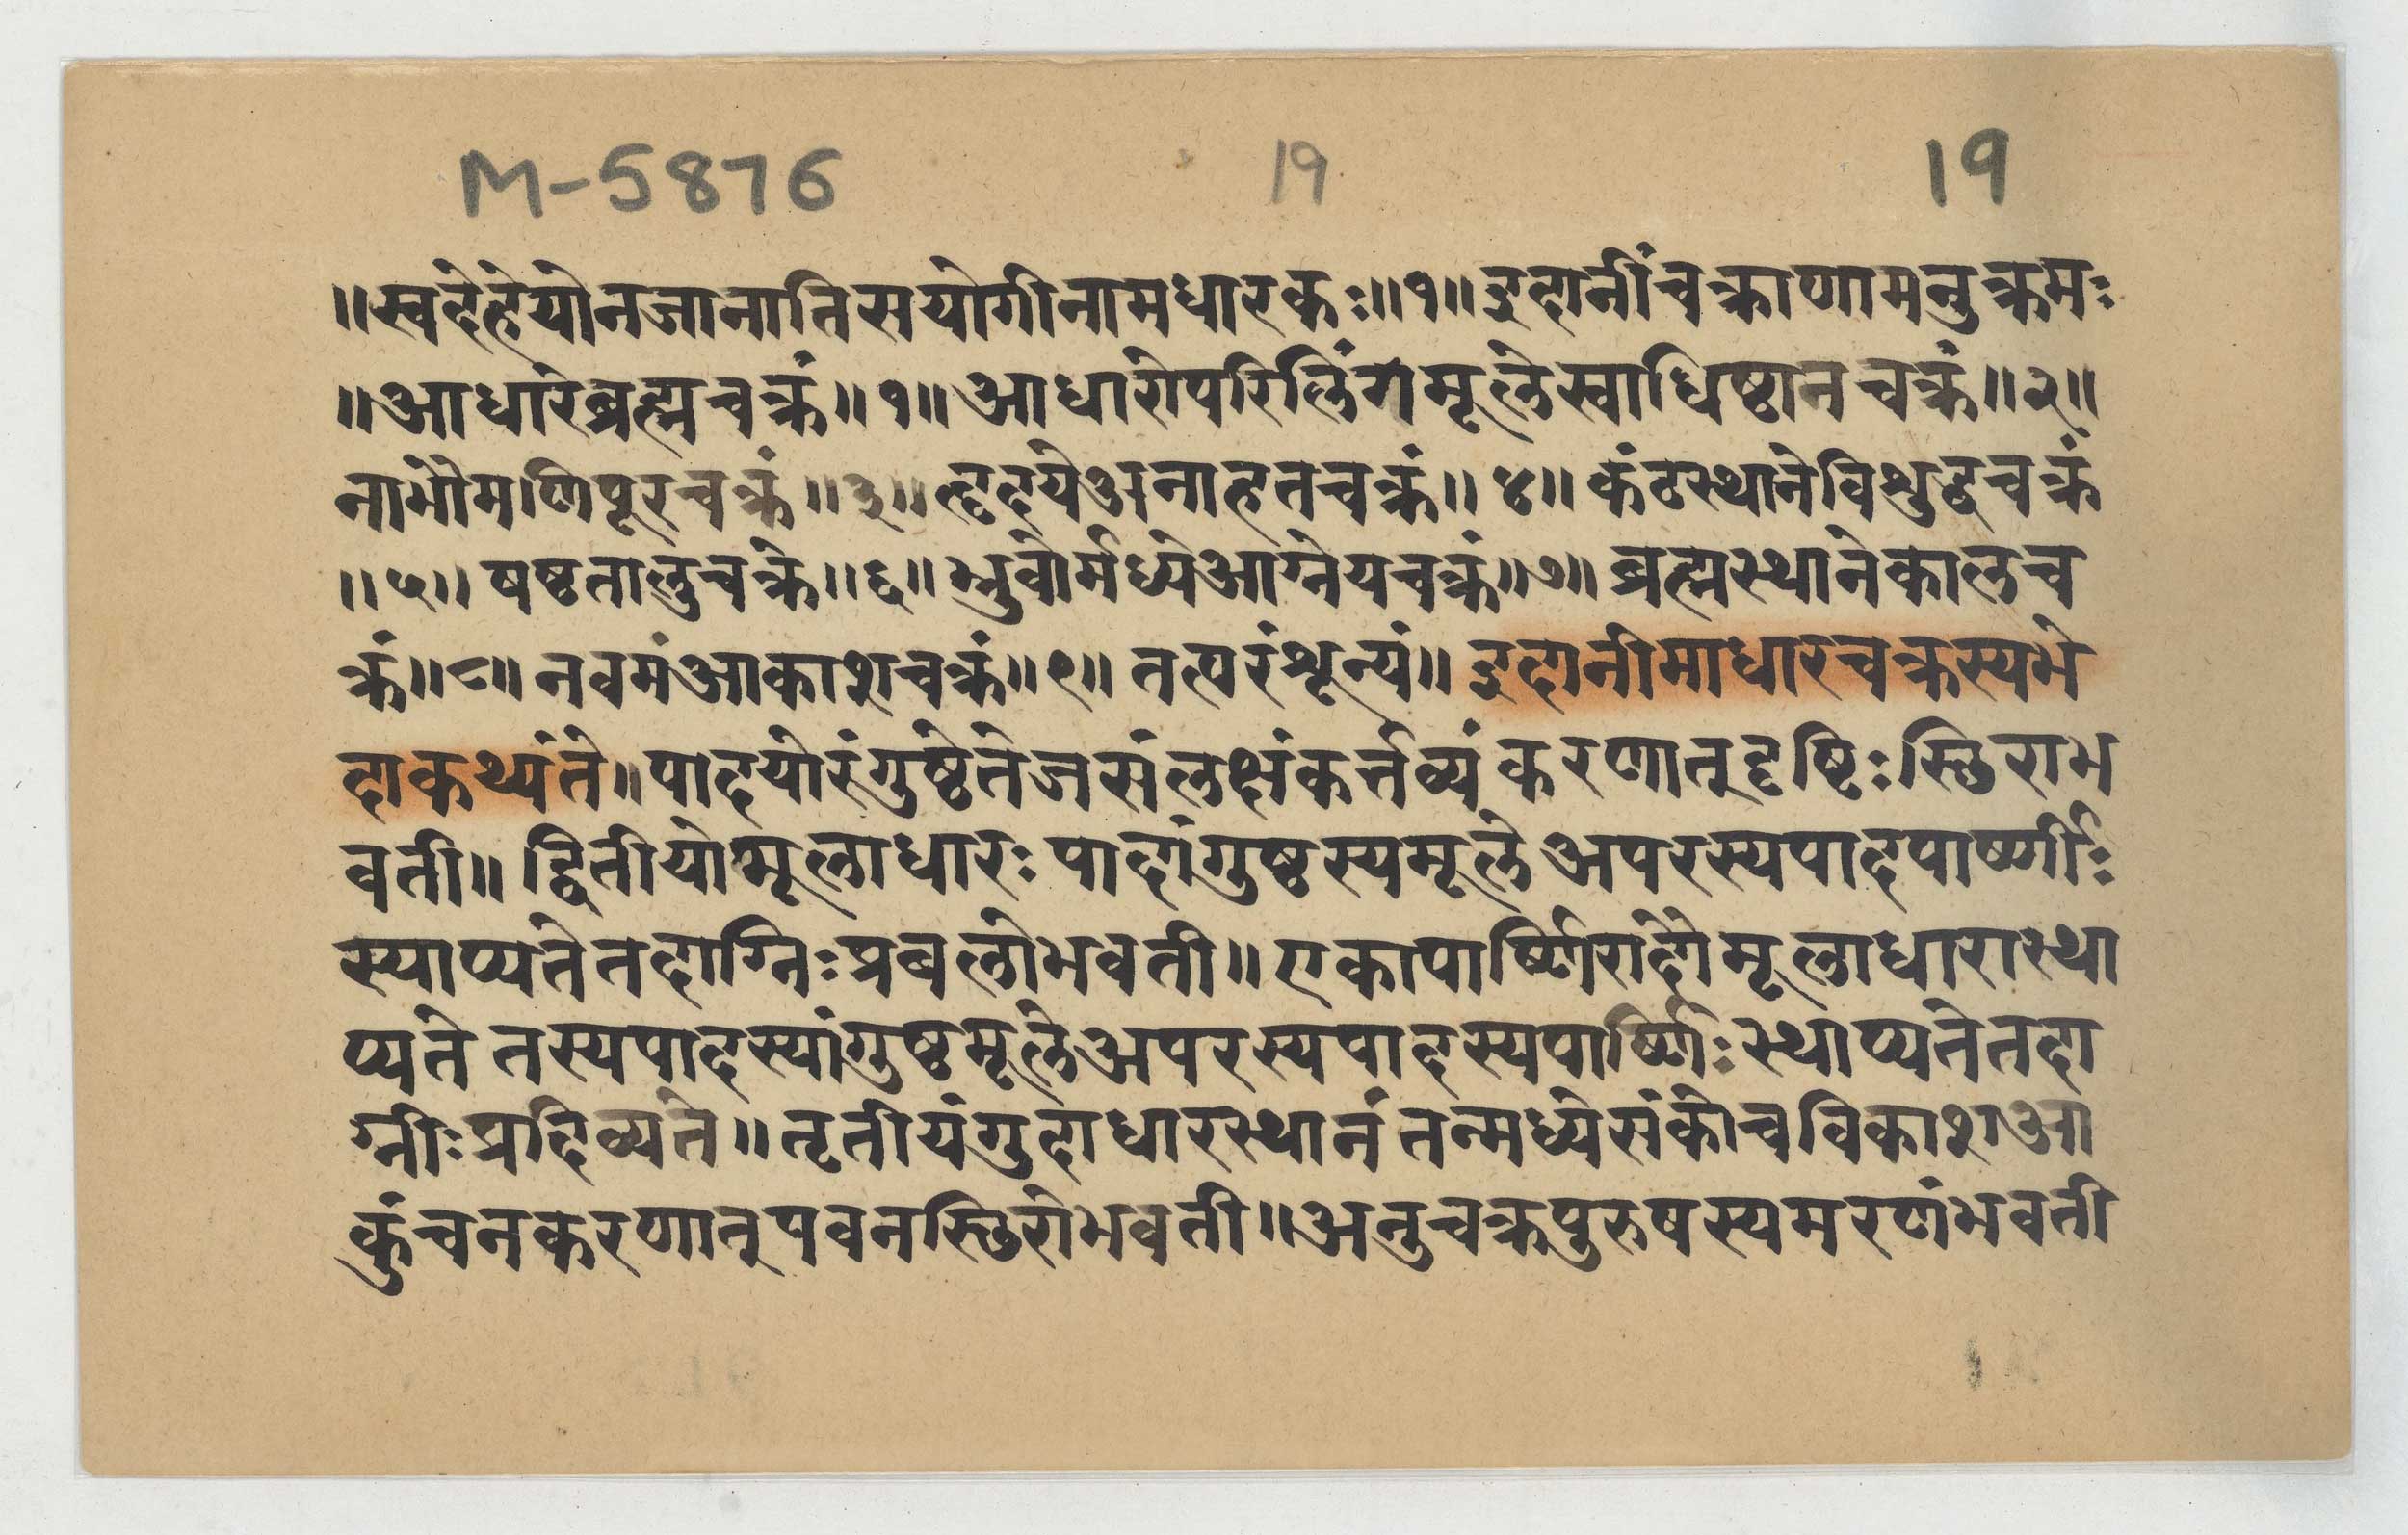 M-5876 19 19
॥स्वदेहेयोनजानातिसयोगीनामधारकः॥१॥इदानींचक्राणामनुक्रमः
॥आधारेब्रह्मचक्रं॥१॥आधारोपरिलिंगेमूलेस्वाधिष्ठानचक्रं॥२॥
नाभौमणिपूरचक्रं॥३॥हृदयेअनाहतचक्रं॥४॥कंठस्थानेविशुद्धचक्रं
॥५॥षष्ठतालुचक्रे॥६॥भ्रुवोर्मध्येआग्नेयचक्रं॥७॥ब्रह्मस्थानेकालच
क्रं॥८॥नवमंआकाशचक्रं॥९॥तत्परंशून्यं॥इदानीमाधारचक्रस्यभे
दाकथ्यंते॥पादयोरंगुष्ठेतेजसंलक्षंकर्त्तव्यंकरणात्दृष्टिःस्छिराभ
वती॥द्वितीयोमूलाधारःपादांगुष्ठस्यमूलेअपरस्यपादपार्ष्णीः
स्याप्यतेतदाग्निःप्रबलोभवती॥एकापार्ष्णिरादौमूलाधारास्था
प्यतेतस्यपादस्यांगुष्ठमूलेअपरस्यपादस्यपार्ष्णिःस्थाप्यतेतदा
ग्नीःप्रदिव्यते॥तृतीयंगुदाधारस्थानंतन्मध्येसंकोचविकाशआ
कुंचनकरणात्पवनस्छिरोभवती॥अनुचक्रपुरुषस्यमरणंभवती